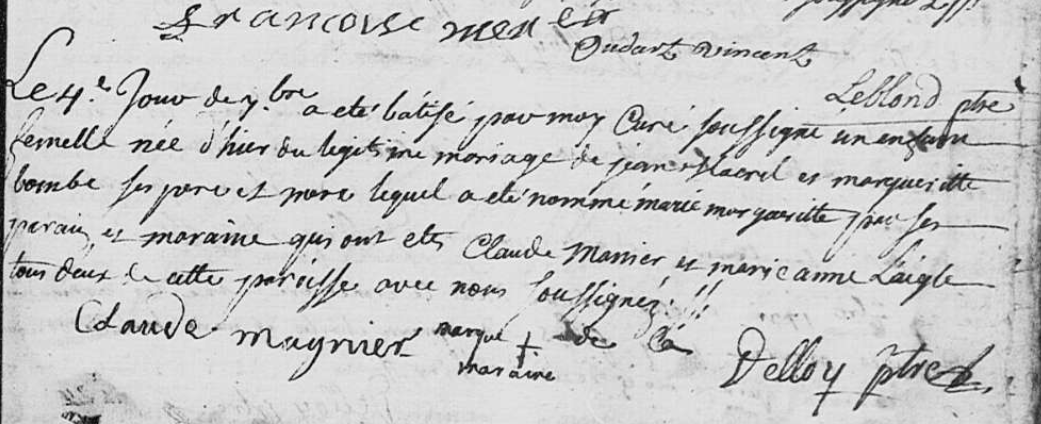 françoise mere
oudart vincent
Leblond ptre
Le 4.e Jour de 7.bre a eté bátisé par moy Curé soussigné un enfant
femelle née d'hier du legitime mariage de jean et margueritte
bombe ses pere et mere lequel a eté nommé marie margueritte par ses
parain et maraine qui ont etés Claude Manier et marie anne Laigle
tous deux de cette paroisse avec nous soussignez.
Claude magnier marque + de la
maraine
Delloy ptre